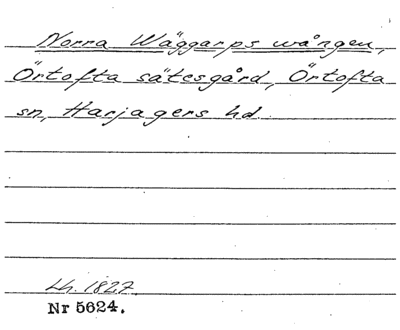 Norra Wäggarps wången,
Örtofta sätesgård, Örtofta
sn, Harjagers hd.
Lh. 1827.
Nr 5624.